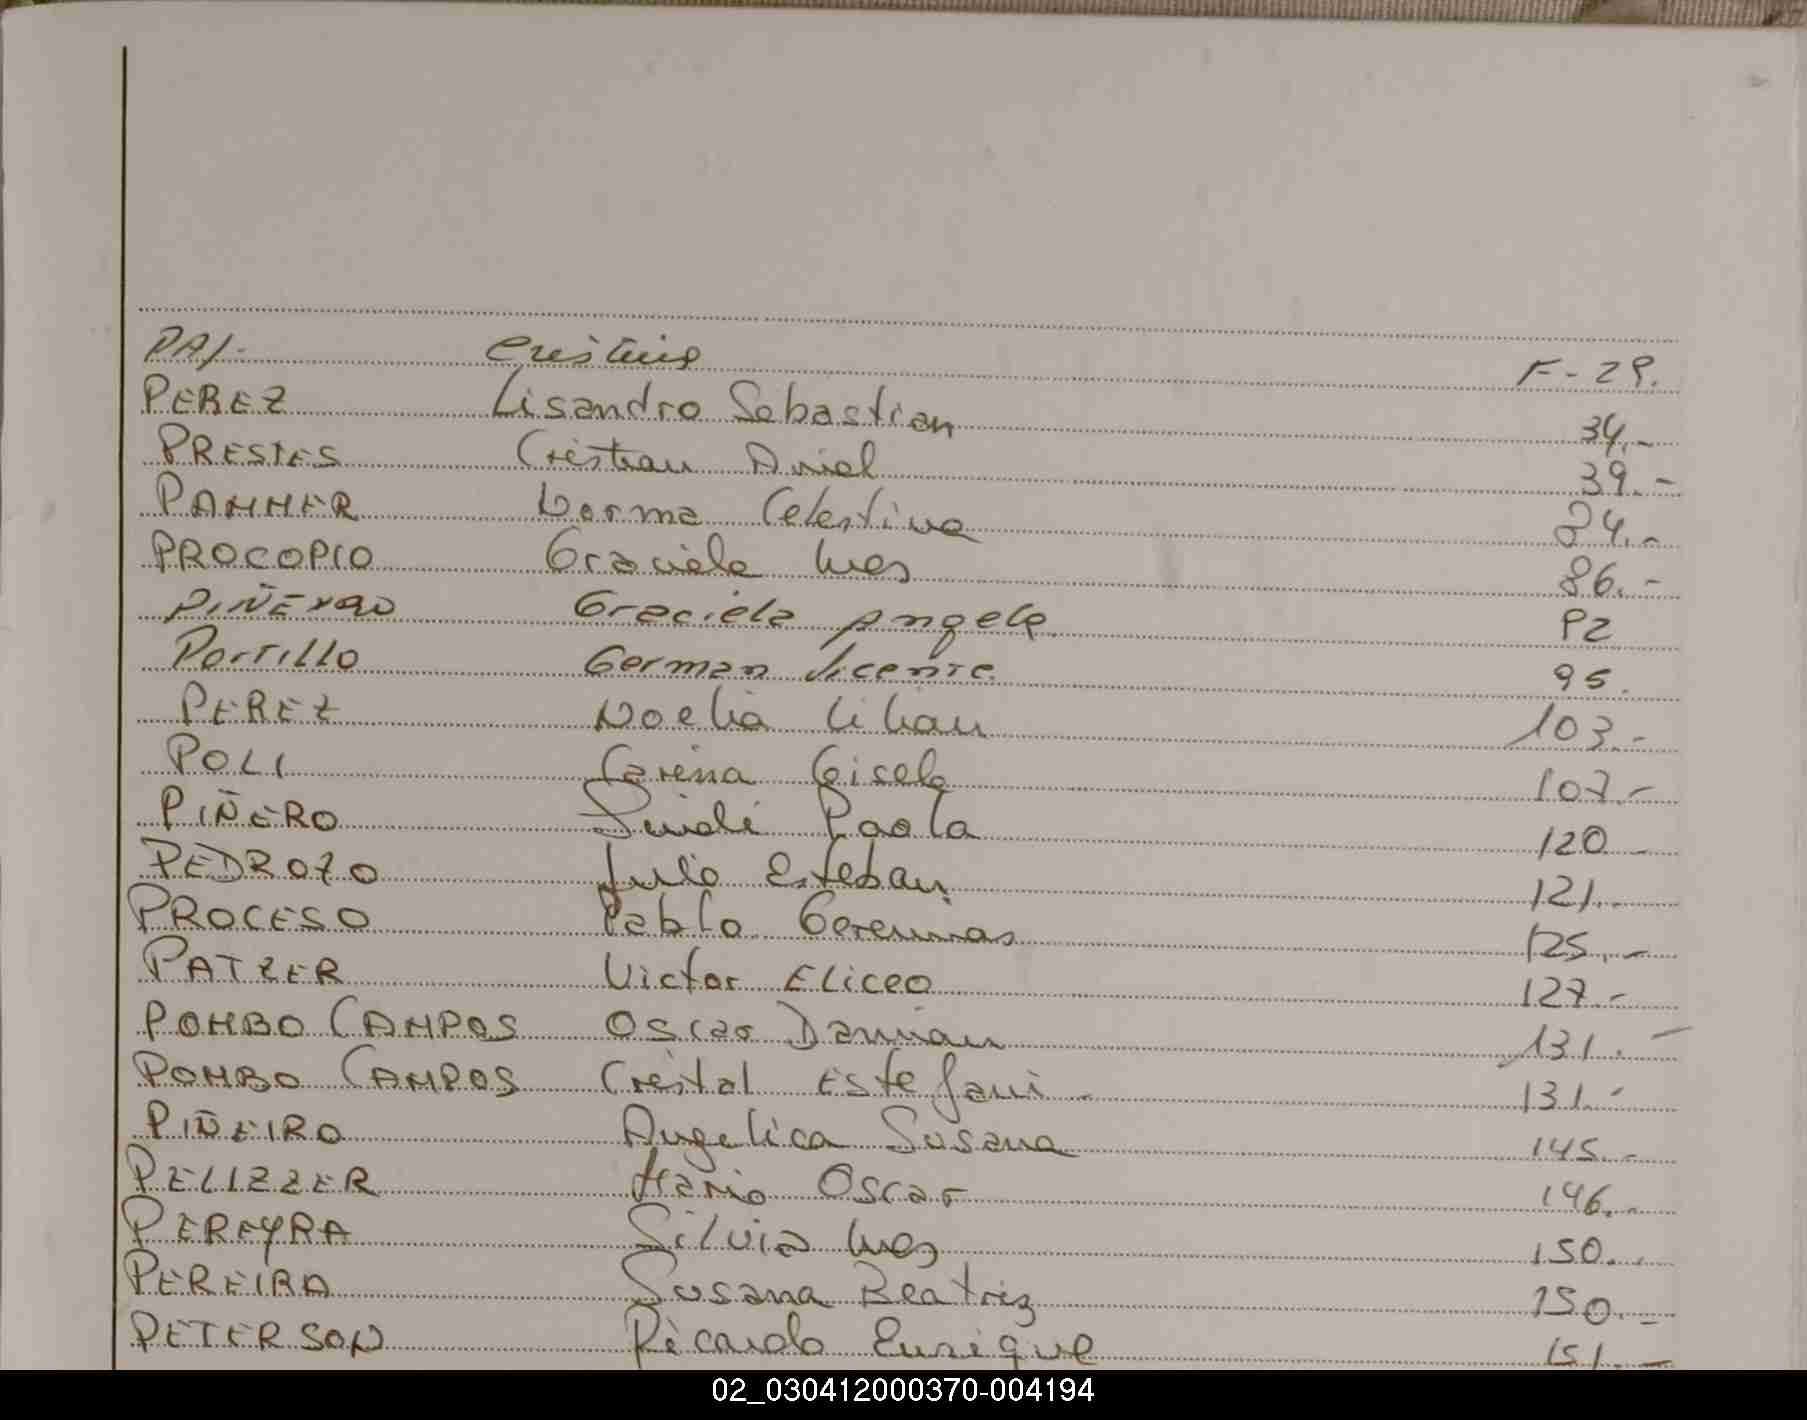 PAZ Cristina F-29.
PEREZ Lisandro Sebastian 34.-
PRESTES Cristian Ariel 39.-
PAMMER Norma Celestina 84.-
PROCOPIO Graciela Ines 86.-
PIÑEYRO Graciela Angela 92
Portillo German Vicente 95.
PEREZ Noelia Lilian 103.-
POLI Carina Gisela 107.-
PIÑERO Paola 120.-
PEDROZO Julio Esteban 121.-
PROCESO Pablo Geremias 125.-
PATZER Victor Eliceo 127.-
POMBO CAMPOS Oscar Damian 131.-
POMBO CAMPOS Cristal Estefani 131.-
PIÑEIRO Angelica Susana 145.-
PELIZZER Mario Oscar 146.-
PEREYRA Silvia Ines 150.-
PEREIRA Susana Beatriz 150.-
PETERSON Ricardo Enrique 151.-
02_030412000370-004194